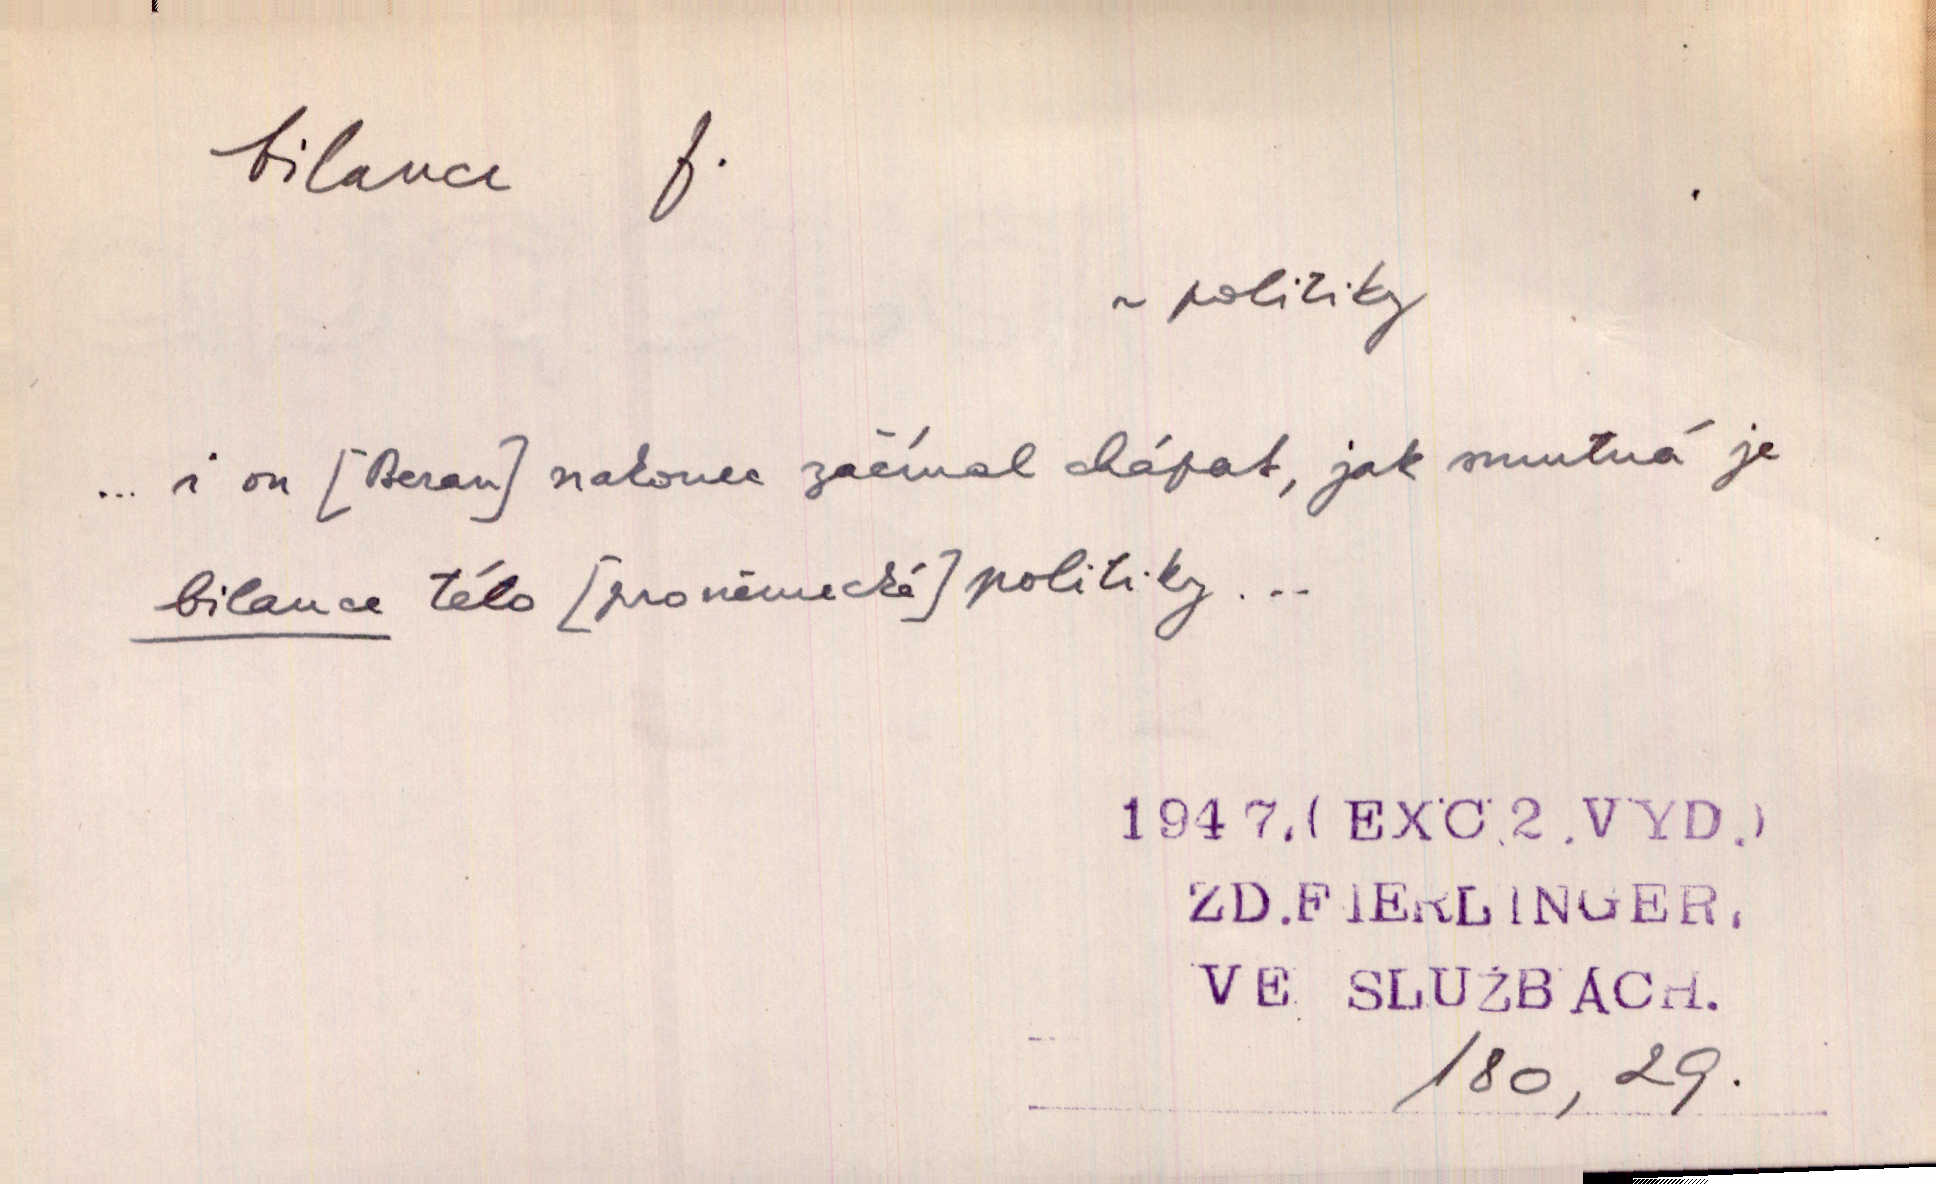 bilance f.
~ politiky
... i on [Beran] nakonec začínal chápat, jak smutná je
bilance této [proněmecké] politiky ...
1947.(EXC.2.VYD.)
ZD.FIERLINGER,
VE SLUŽBÁCH.
180, 29.